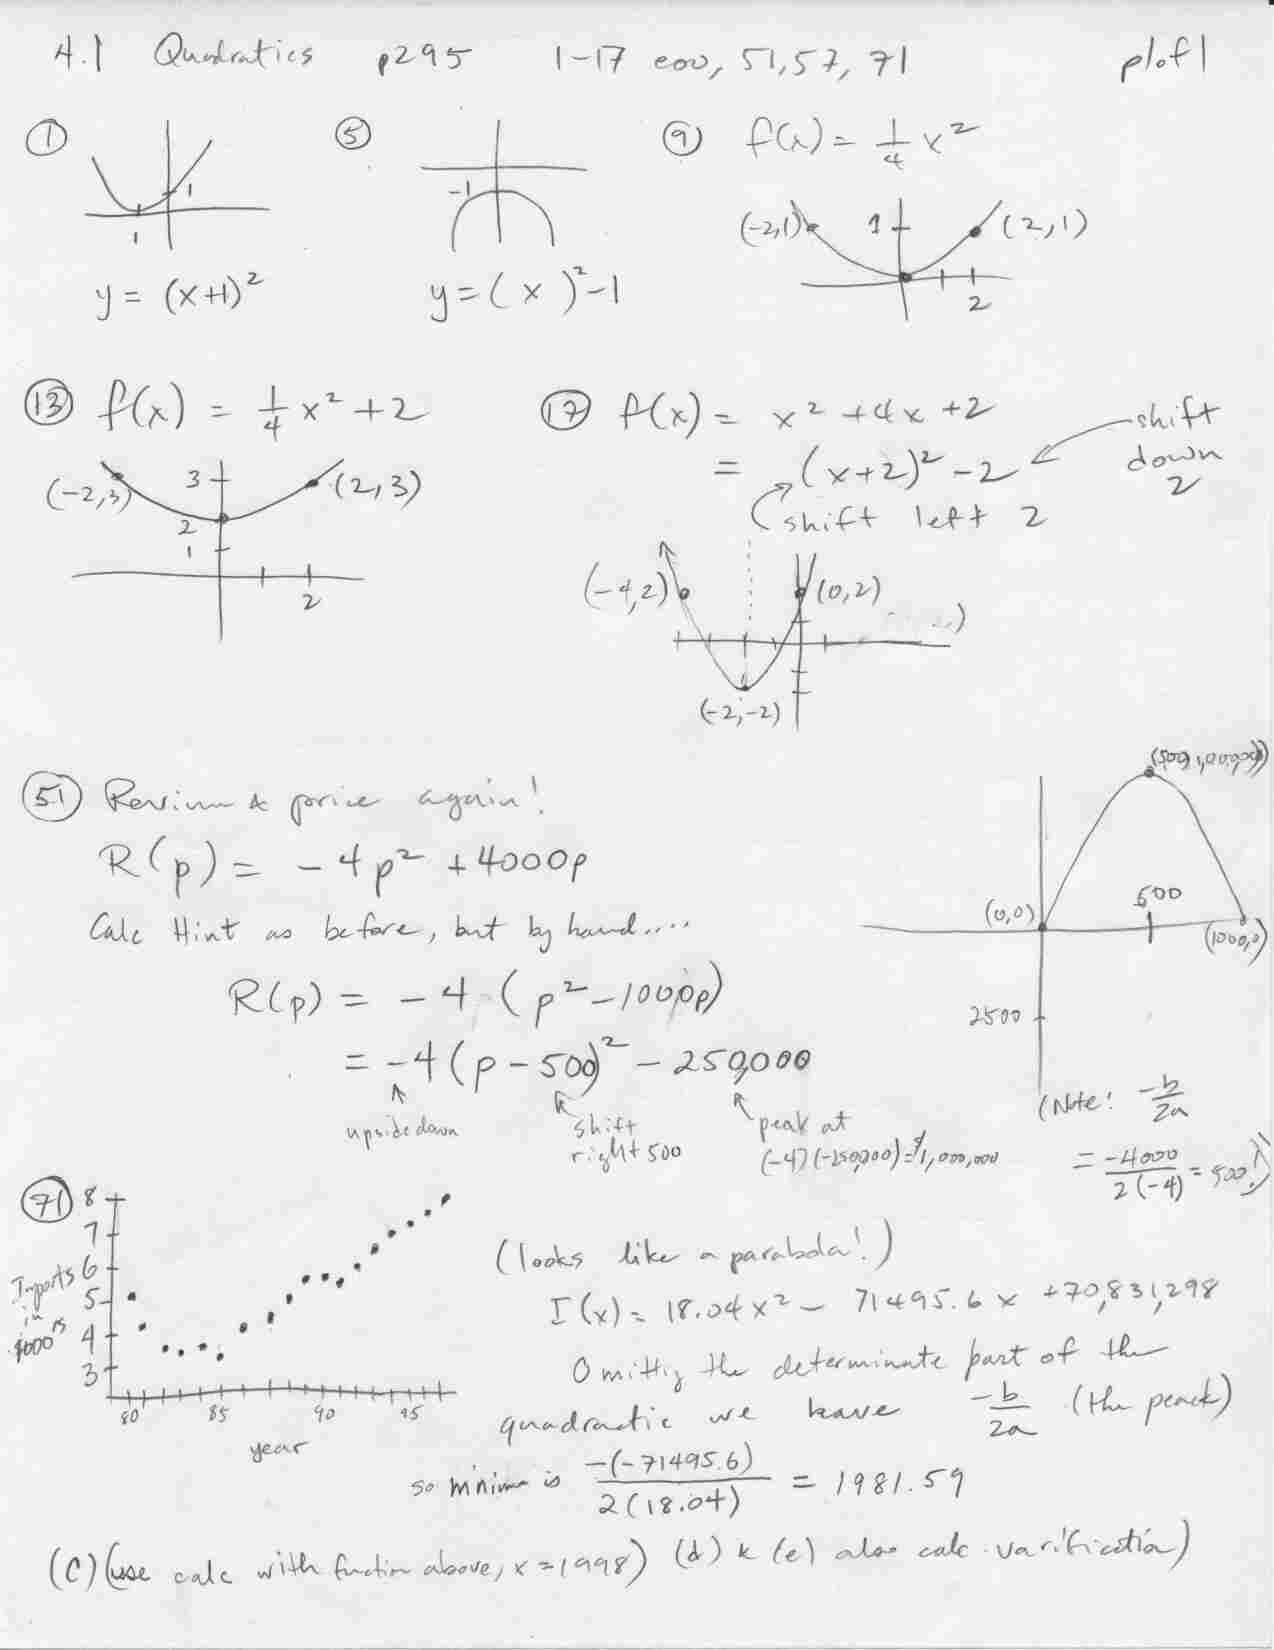 4.1 Quadratics p295 1-17 eoo, 51,57, 71 p1of1
① 1 1
y = (x+1)²
⑤ -1
y = ( x )² -1
⑨ f(x) = 1/4 x²
(-2,1) 1 (2,1)
2
⑬ f(x) = 1/4 x² + 2
(-2,3) 3 (2,3)
2
1
2
⑰ f(x) = x² + 4x + 2
= (x+2)² - 2 shift down 2
shift left 2
(-4,2) (0,2)
(-2,-2)
(51) price again!
R(p) = -4p² + 4000p
Calc Hint as before, but by hand....
R(p) = -4 (p² - 1000p)
= -4 (p - 500)² - 250,000
upside down
shift right 500
peak at
(-4)(-250,000) = $1,000,000
(500, 1,000,000)
(0,0) 500 (1000,0)
2500
(Note: -b/2a
= -4000/2(-4) = 500!)
(71) 8
7
6
5
4
3
Imports in 1000's
80 85 90 95
year
(looks like a parabola!)
I(x) = 18.04x² - 71495.6x + 70,831,298
Omittig the determinate part of the
quadractic we have -b/2a (the peack)
so minimum is -(-71495.6)/2(18.04) = 1981.59
(C) (use calc with function above, x = 1998) (d) & (e) also calc. varification)